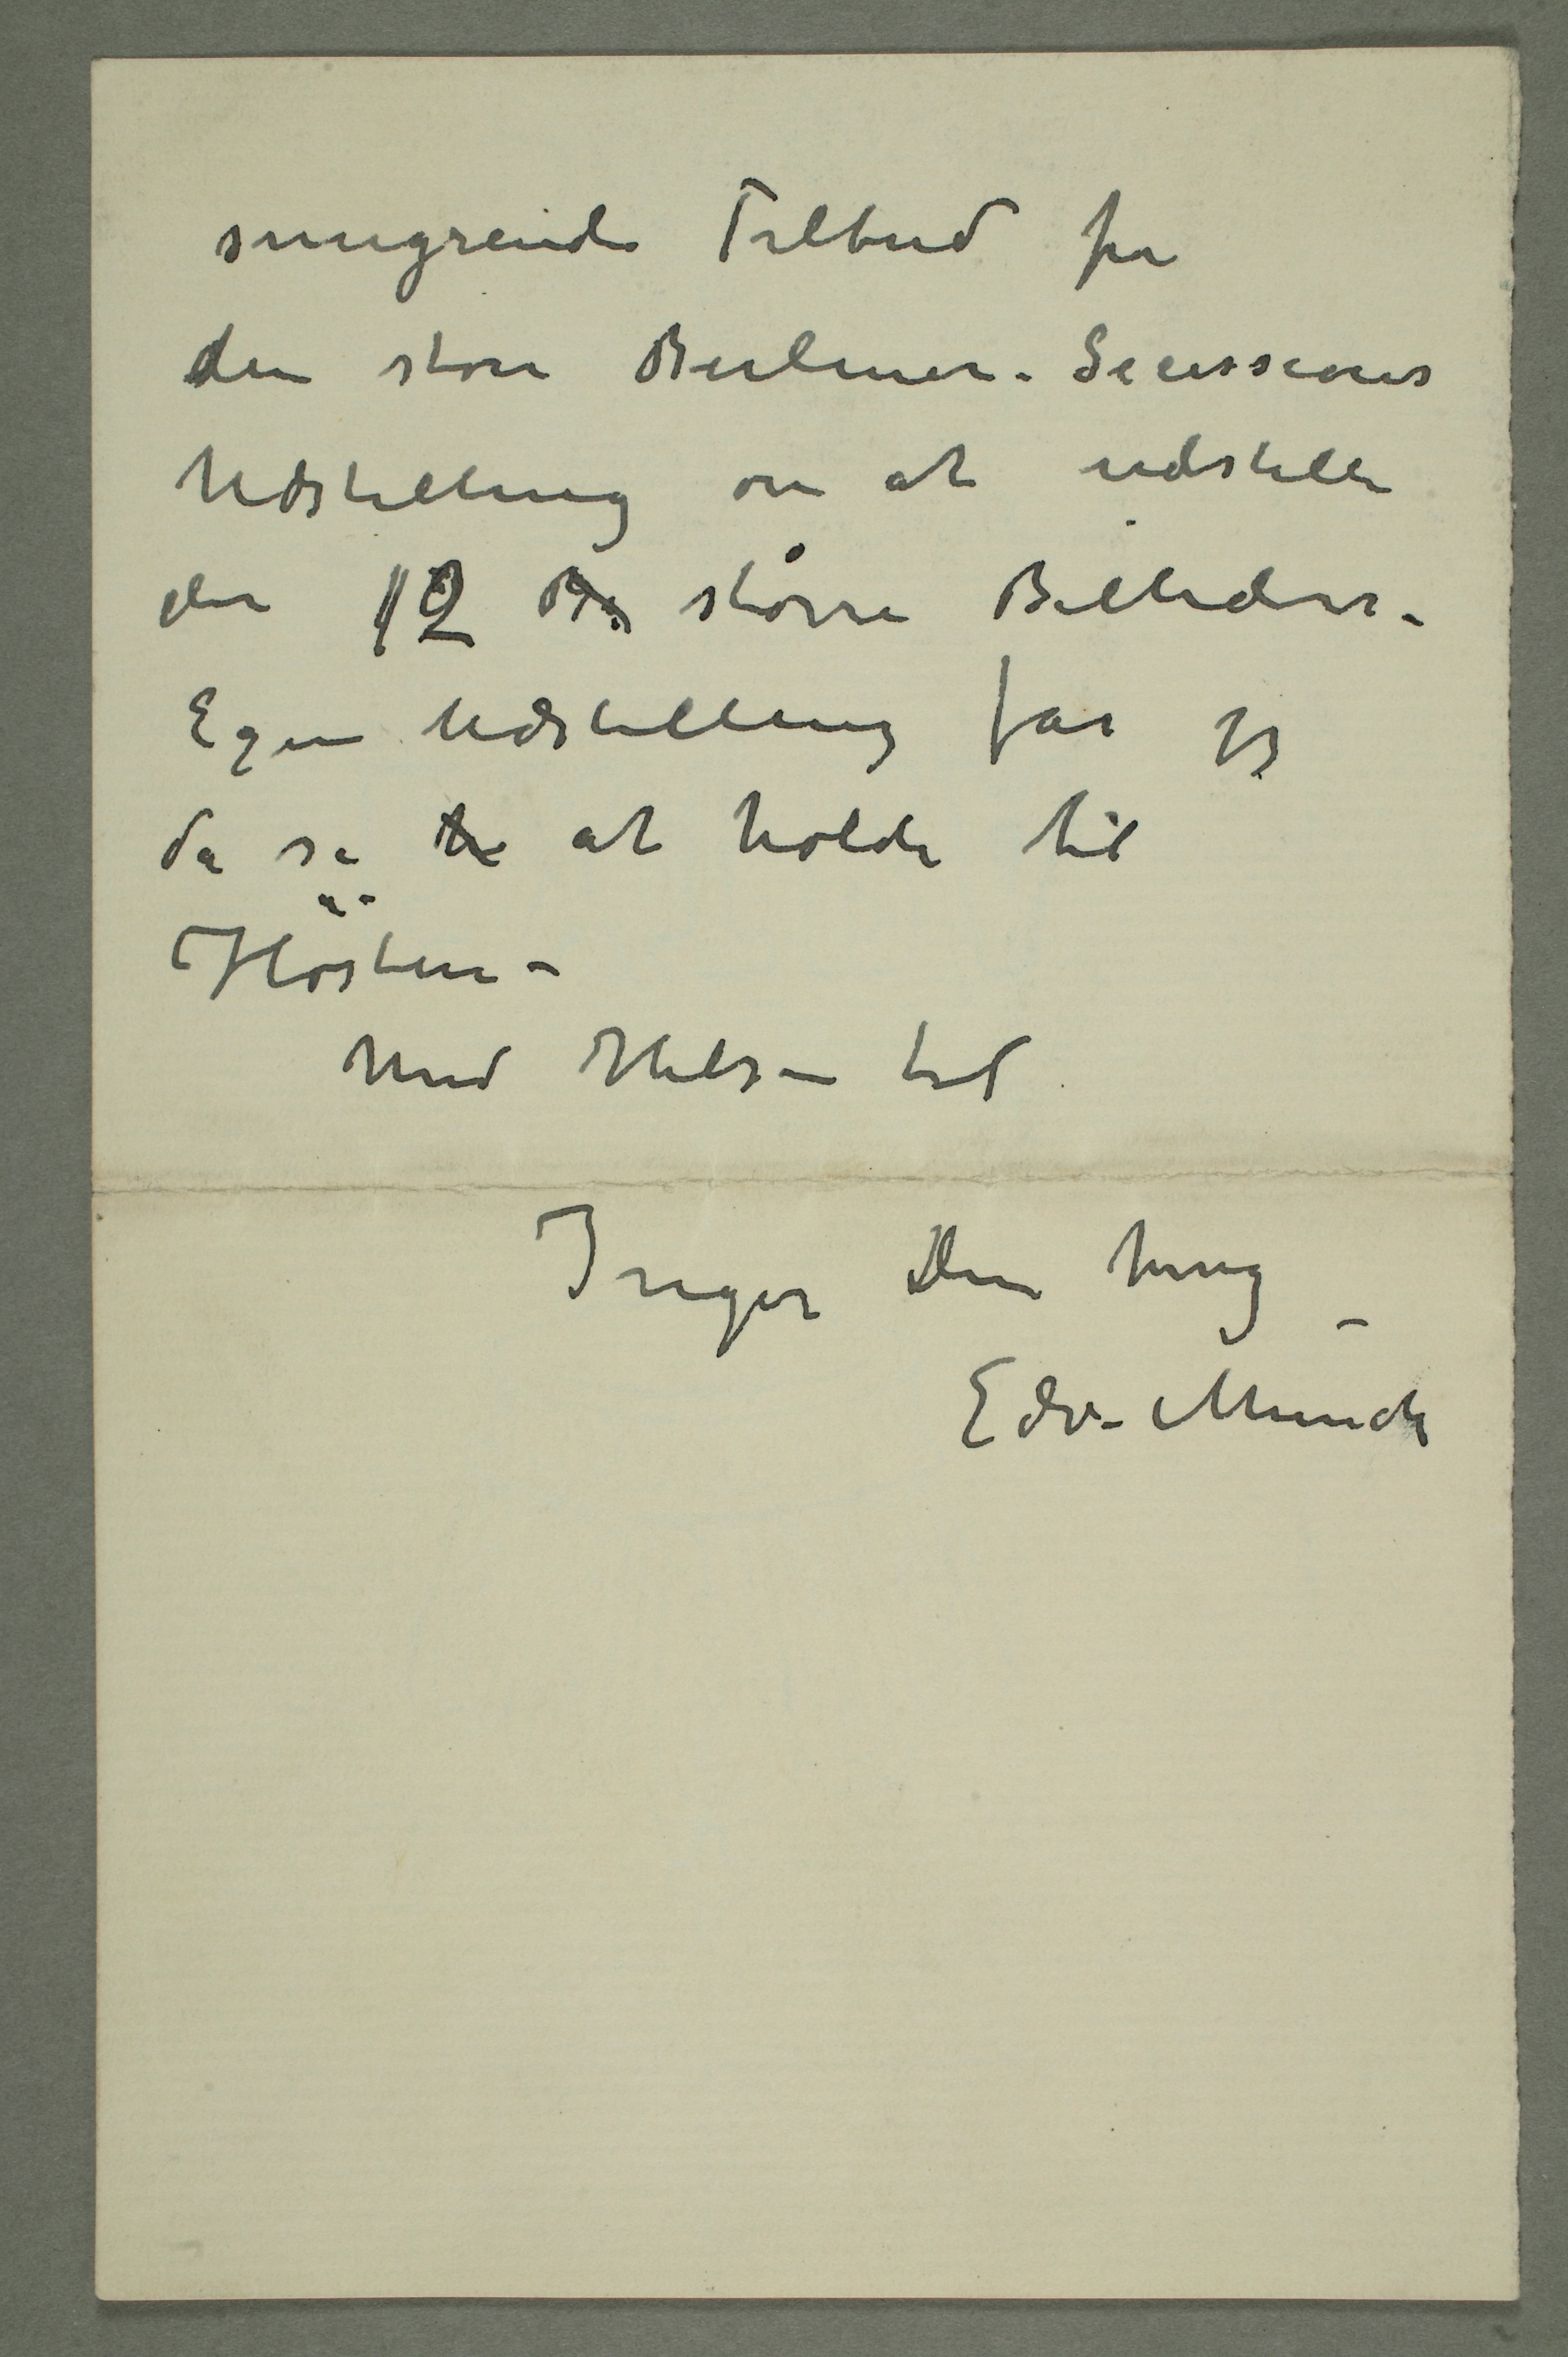 smigrende Tilbud fra
den store Berliner-Secessions
Udstilling om at udstille
der 12 större Billeder.
Egen Udstilling får jeg
da se at holde til
Hösten –
Med Hilsen til
Inger Din heng –
Edv. Munch